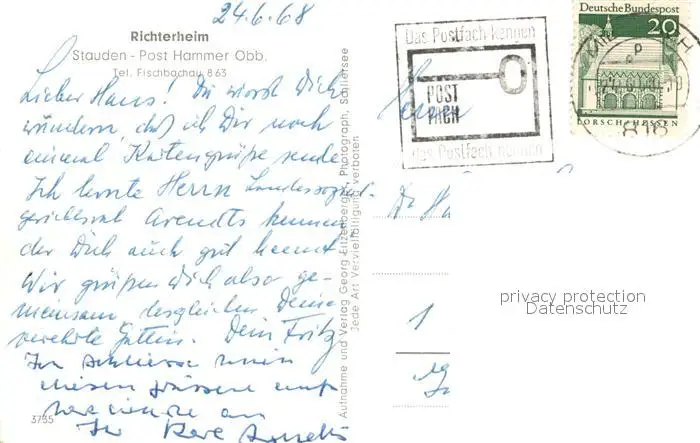 24.6.68
Richterheim
Stauden - Post Hammer Obb.
Tel. Fischbachau 863
Lieber Hans! Du wirst Dich
wundern, daß ich Dir noch
einmal Kartengrüße sende.
Ich lernte Herrn Landessozial-
gerichtsrat Arendts kennen,
der Dich auch gut kennt.
Wir grüßen Dich also ge-
meinsam, desgleichen Deine
verehrte Gattin. Dein Fritz
Ich schliesse mich
diesen Grüssen auf
an
Ihr Karl Arendts
3735
Aufnahme und Verlag Georg Eitzenberger, Photograph, Schliersee
Jede Art Vervielfältigung verboten
Das Postfach kennen
POST
FACH
das Postfach nennen
Deutsche Bundespost
20
LORSCH/HESSEN
816
Herrn
Dr Ha
1
privacy protection
Datenschutz